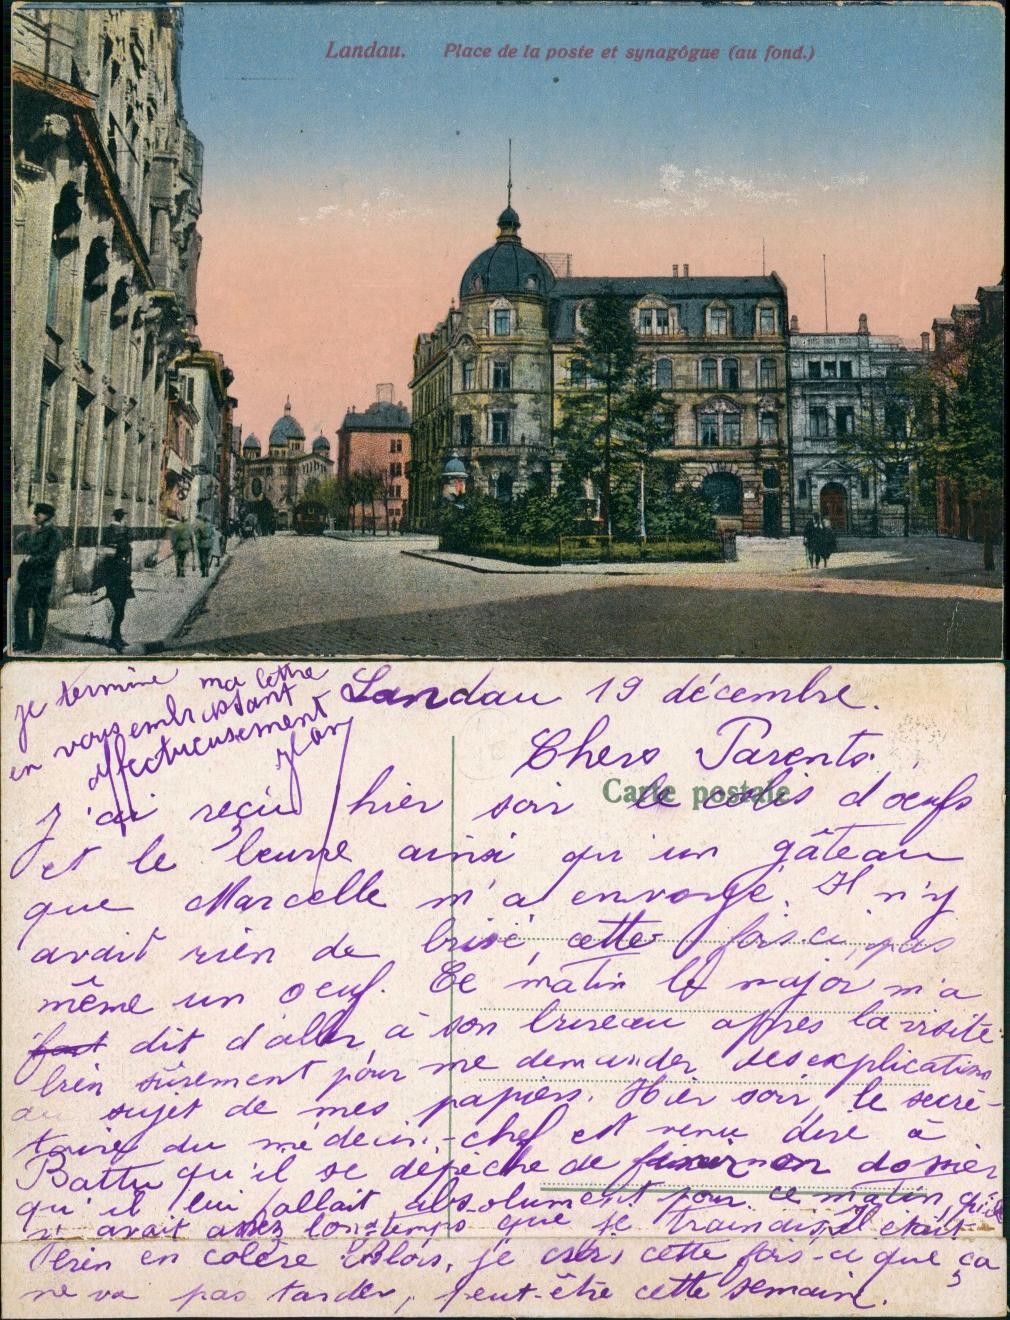 Landau. Place de la poste et synagógue (au fond.)
Landau 19 décembre.
Chers Parents
Carte postale
J'ai reçu hier soir le colis d'oeufs
et le beurre ainsi qu'un gâteau
que Marcelle m'a envoyé. Il n'y
avait rien de brisé, cette fois ci, pas
même un oeuf. Ce matin le major m'a
fait dit d'aller à son bureau après la visite
bien sûrement pour me demander des explications
au sujet de mes papiers. Hier soir, le secré-
taire du médecin-chef est venu dire à
Battu qu'il se dépêche de mon dossier
qu'il lui fallait absolument pour ce matin, qu'il
y avait assez longtemps que je traindis, il était
bien en colère Alors, je crois cette fois-ci que ça
ne va pas tarder, peut-être cette semaine.
je termine ma lettre
en vous embrassant
affectueusement